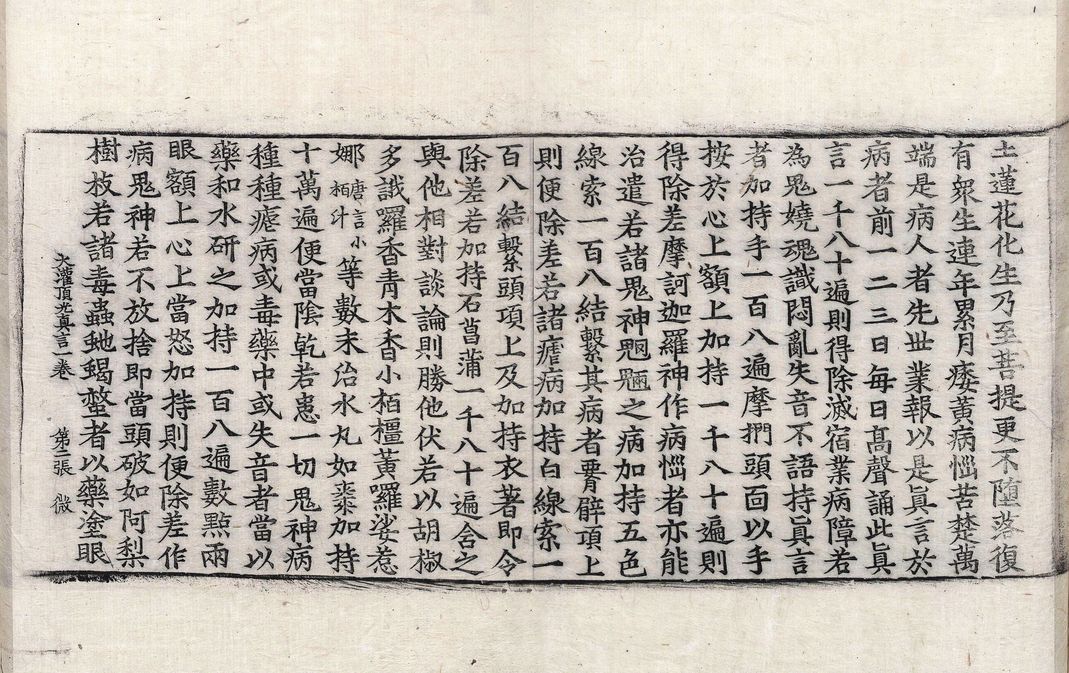 土蓮花化生乃至菩提更不墮落復
有衆生連年累月痿黃病惱苦楚萬
端是病人者先世業報以是眞言於
病者前一二三日每日髙聲誦此眞
言一千八十遍則得除滅宿業病障若
為鬼嬈魂識悶亂失音不語持眞言
者加持手一百八遍摩捫頭面以手
按於心上額上加持一千八十遍則
得除差摩訶迦羅神作病惱者亦能
治遣若諸鬼神魍魎之病加持五色
線索一百八結繫其病者𦝫臂項上
則便除差若諸瘧病加持白線索一
百八結繫頭項上及加持衣著即令
除差若加持石菖蒲一千八十遍含之
與他相對談論則勝他伏若以胡椒
多誐羅香青木香小栢檀黃囉娑惹
娜唐言小栢汁等數末治水丸如棗加持
十萬遍便當陰乾若患一切鬼神病
種種瘧病或毒藥中或失音者當以
藥和水研之加持一百八遍數點兩
眼額上心上當怒加持則便除差作
病鬼神若不放捨即當頭破如阿梨
樹枝若諸毒蟲虵蝎螫者以藥塗眼
大灌頂光真言一卷 第二張 微